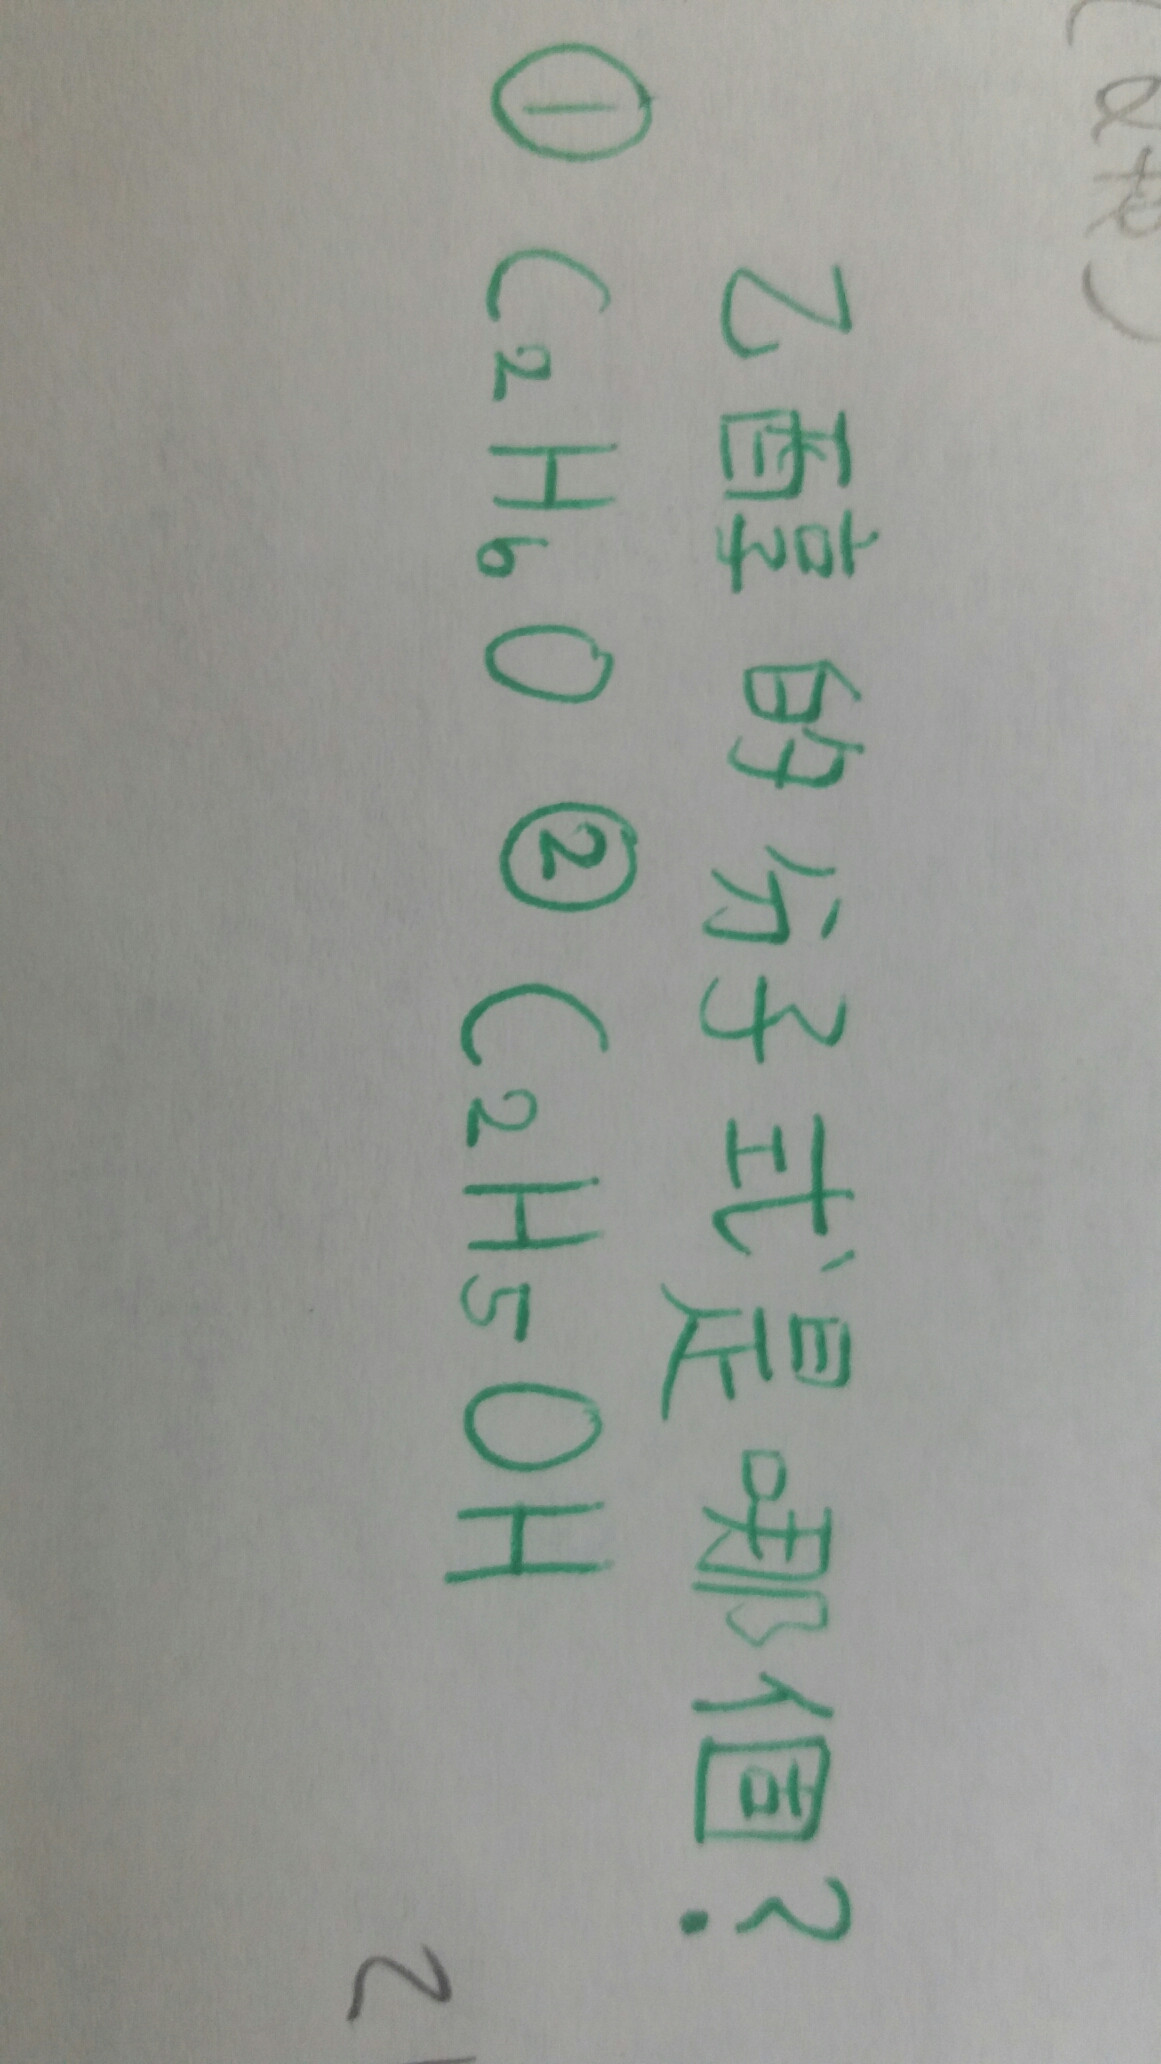 乙醇的分子式是哪個?
① C₂H₆O ② C₂H₅OH